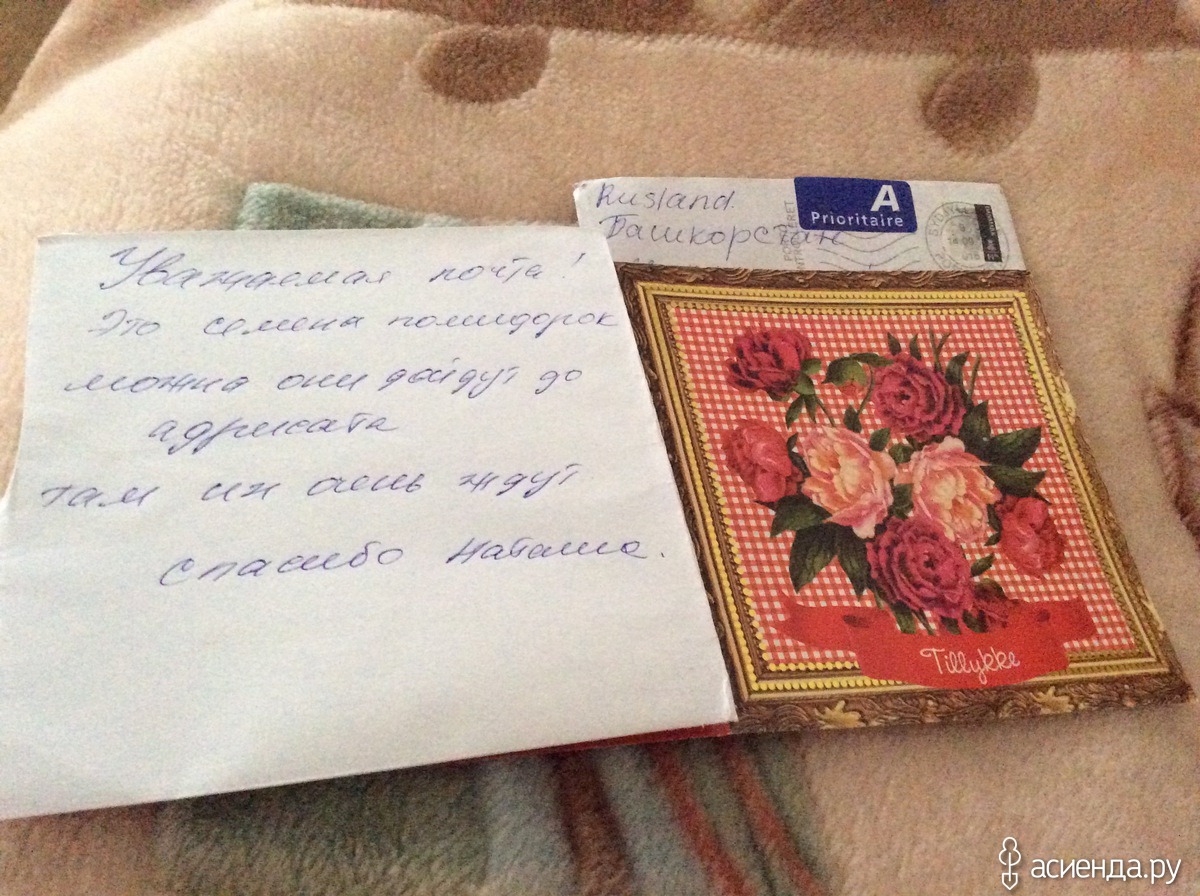 Уважаемая почта!
Это семена помидорок
можно они дойдут до
адрисата
там их очень ждут
спасибо Наташа.
Rusland
Башкорстан
A
Prioritaire
Tillykke
асиенда.ру